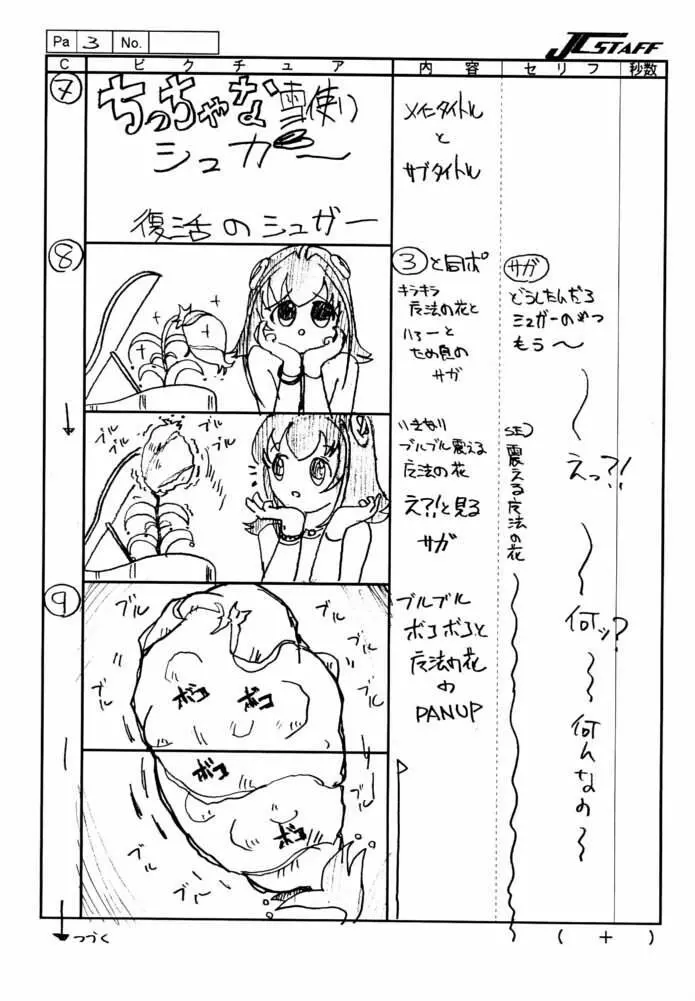 Pa 3 No.
JC STAFF
C ピクチュア 内容 セリフ 秒数
7
ちっちゃな雪使い
シュガー
復活のシュガー
メインタイトル
と
サブタイトル
8
3と同ポ
キラキラ
魔法の花と
ハァーと
ため息の
サガ
サガ
どうしたんだろ
シュガーのやつ
もう〜
ブルブル
ブルブル
いきなり
ブルブル震える
魔法の花
え?!と見る
サガ
SE)
震える魔法の花
えっ?!
9
ブル
ブル
ブル
ブル
ブル
ボコ
ボコ
ブルブル
ボコボコと
魔法の花
の
PANUP
何ッ?
何んなの〜
ボコ
ボコ
ブル
ブル
ブル
ブル
つづく
( + )